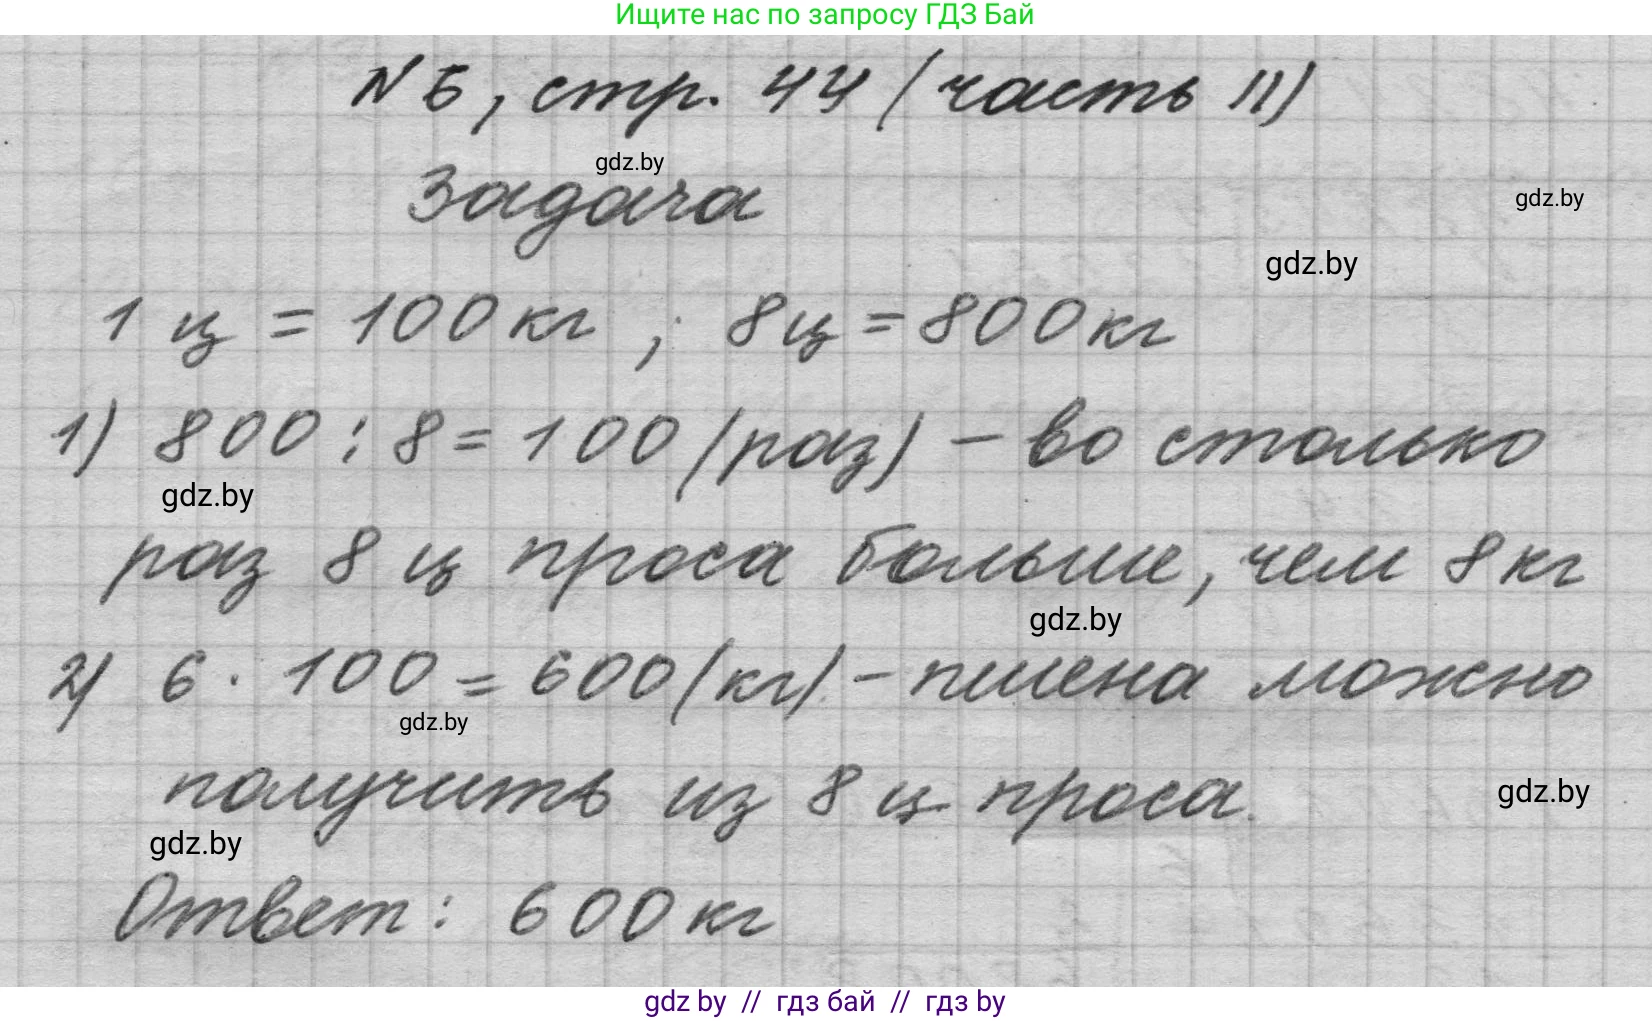 Ищите нас по запросу ГДЗ Бай
№5, стр. 44 (часть II)
gdz.by
Задача
gdz.by
gdz.by
1 ц = 100 кг ; 8ц = 800 кг
1) 800 : 8 = 100 (раз) – во столько
gdz.by
раз 8 ц проса больше, чем 8 кг
gdz.by
2) 6 · 100 = 600 (кг) – пшена можно
gdz.by
получить из 8 ц проса.
gdz.by
gdz.by
Ответ: 600 кг
gdz by // гдз бай // гдз by